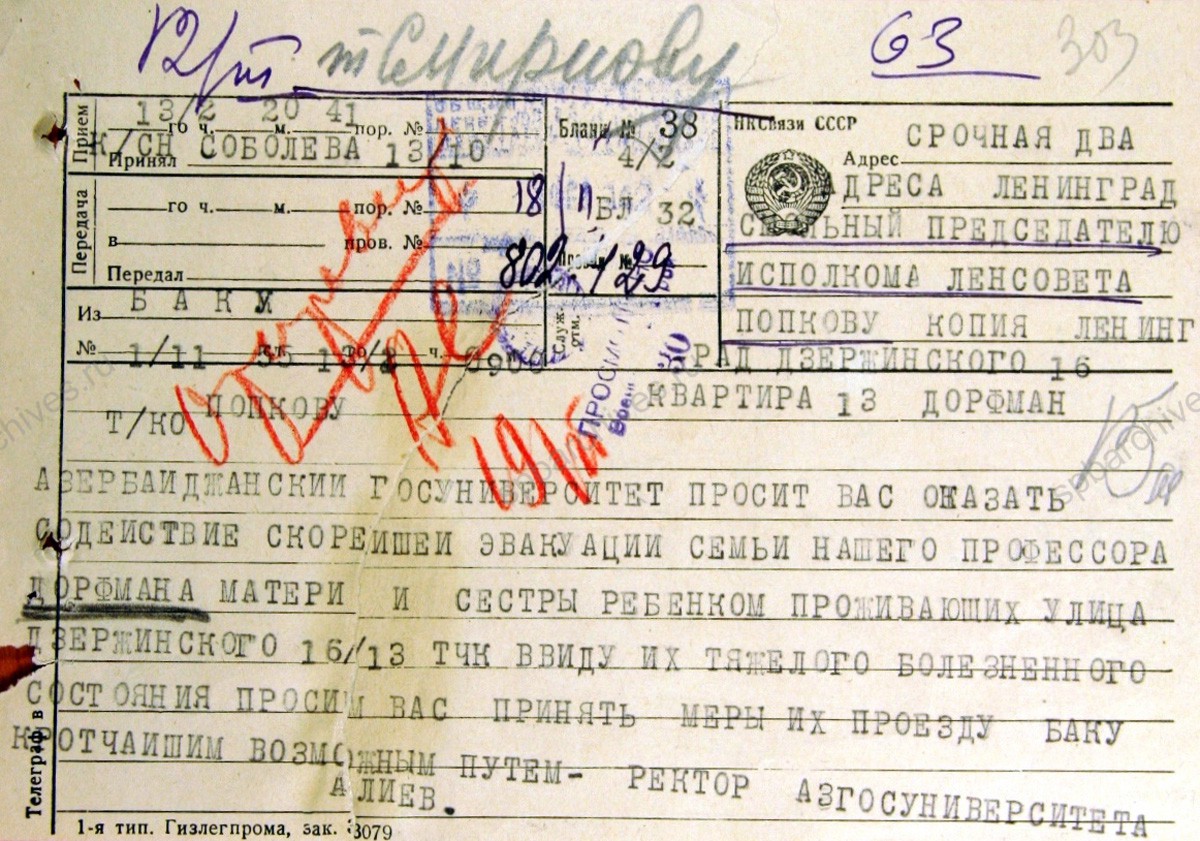 т Смирнову 63 303
Прием 13/2 20 41
го ч. м. пор. №
К/СН СОБОЛЕВА 13/10
Принял
Передача
го ч. м. пор. № 18/II
в пров. № 802 129
Передал
Из БАКУ
№ 1/11 ч.
Бланк № 38
4/2
БЛ 32
Служ. отм.
НКСвязи СССР
Адрес СРОЧНАЯ ДВА
ДРЕСА ЛЕНИНГРАД
ПРЕДСЕДАТЕЛЮ
ИСПОЛКОМА ЛЕНСОВЕТА
ПОПКОВУ КОПИЯ ЛЕНИНГ
РАД ДЗЕРЖИНСКОГО 16
КВАРТИРА 13 ДОРФМАН
Т/КО ПОПКОВУ
19/II
АЗЕРБАИДЖАНСКИИ ГОСУНИВЕРСИТЕТ ПРОСИТ ВАС ОКАЗАТЬ
СОДЕЙСТВИЕ СКОРЕИШЕИ ЭВАКУАЦИИ СЕМЬИ НАШЕГО ПРОФЕССОРА
ДОРФМАНА МАТЕРИ И СЕСТРЫ РЕБЕНКОМ ПРОЖИВАЮЩИХ УЛИЦА
ДЗЕРЖИНСКОГО 16/13 ТЧК ВВИДУ ИХ ТЯЖЕЛОГО БОЛЕЗНЕННОГО
СОСТОЯНИЯ ПРОСИМ ВАС ПРИНЯТЬ МЕРЫ ИХ ПРОЕЗДУ БАКУ
КРОТЧАИШИМ ВОЗМОЖНЫМ ПУТЕМ- РЕКТОР АЗГОСУНИВЕРСИТЕТА
АЛИЕВ.
Телеграф в
1-я тип. Гизлегпрома, зак. 3079
spbarchives.ru